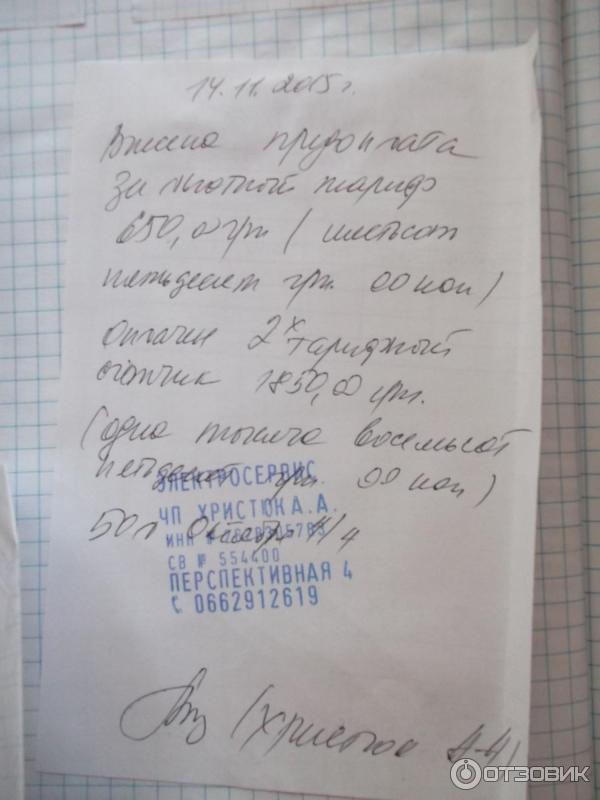 14.11.2015г.
Внесена предоплата
за льготный тариф
650,00 грн ( шестьсот
пятьдесят грн. 00 коп)
Оплачен 2х тарифный
счётчик 1850,00 грн.
(одна тысяча восемьсот
пятьдесят грн. 00 коп)
ЭЛЕКТРОСЕРВИС
ЧП ХРИСТЮК А.А.
ИНН
50л
СВ № 554400
ПЕРСПЕКТИВНАЯ 4
С 0662912619
(Христюк А.А)
ОТЗОВИК